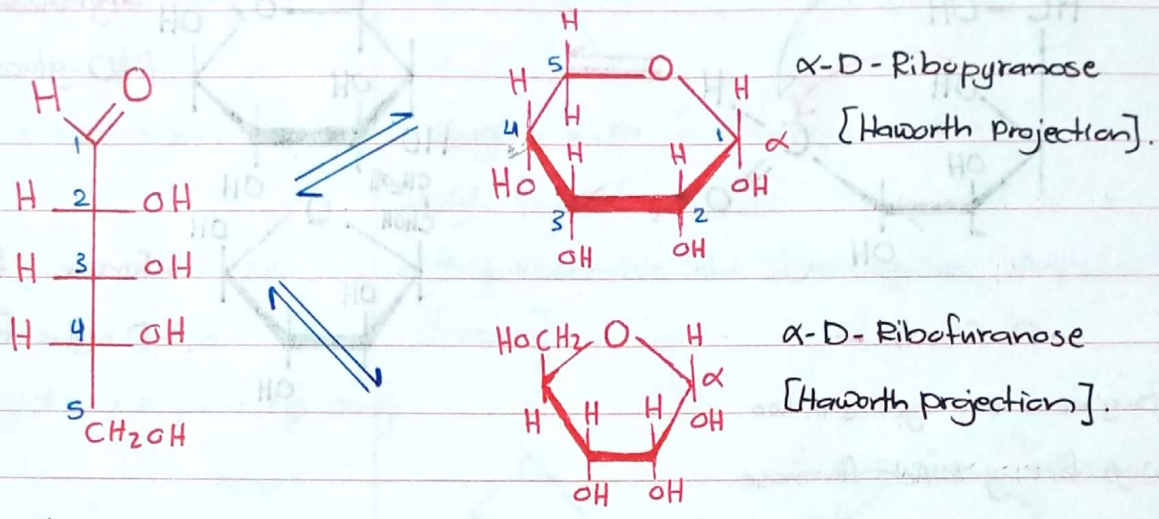 H O
1
H 2 OH
H 3 OH
H 4 OH
5
CH2OH
H
5 O
H H
H
4 H H 1 α
HO OH
3 2
OH OH
α-D-Ribopyranose
[Haworth Projection].
HOCH2 O H
α
H H H OH
OH OH
α-D-Ribofuranose
[Haworth projection].